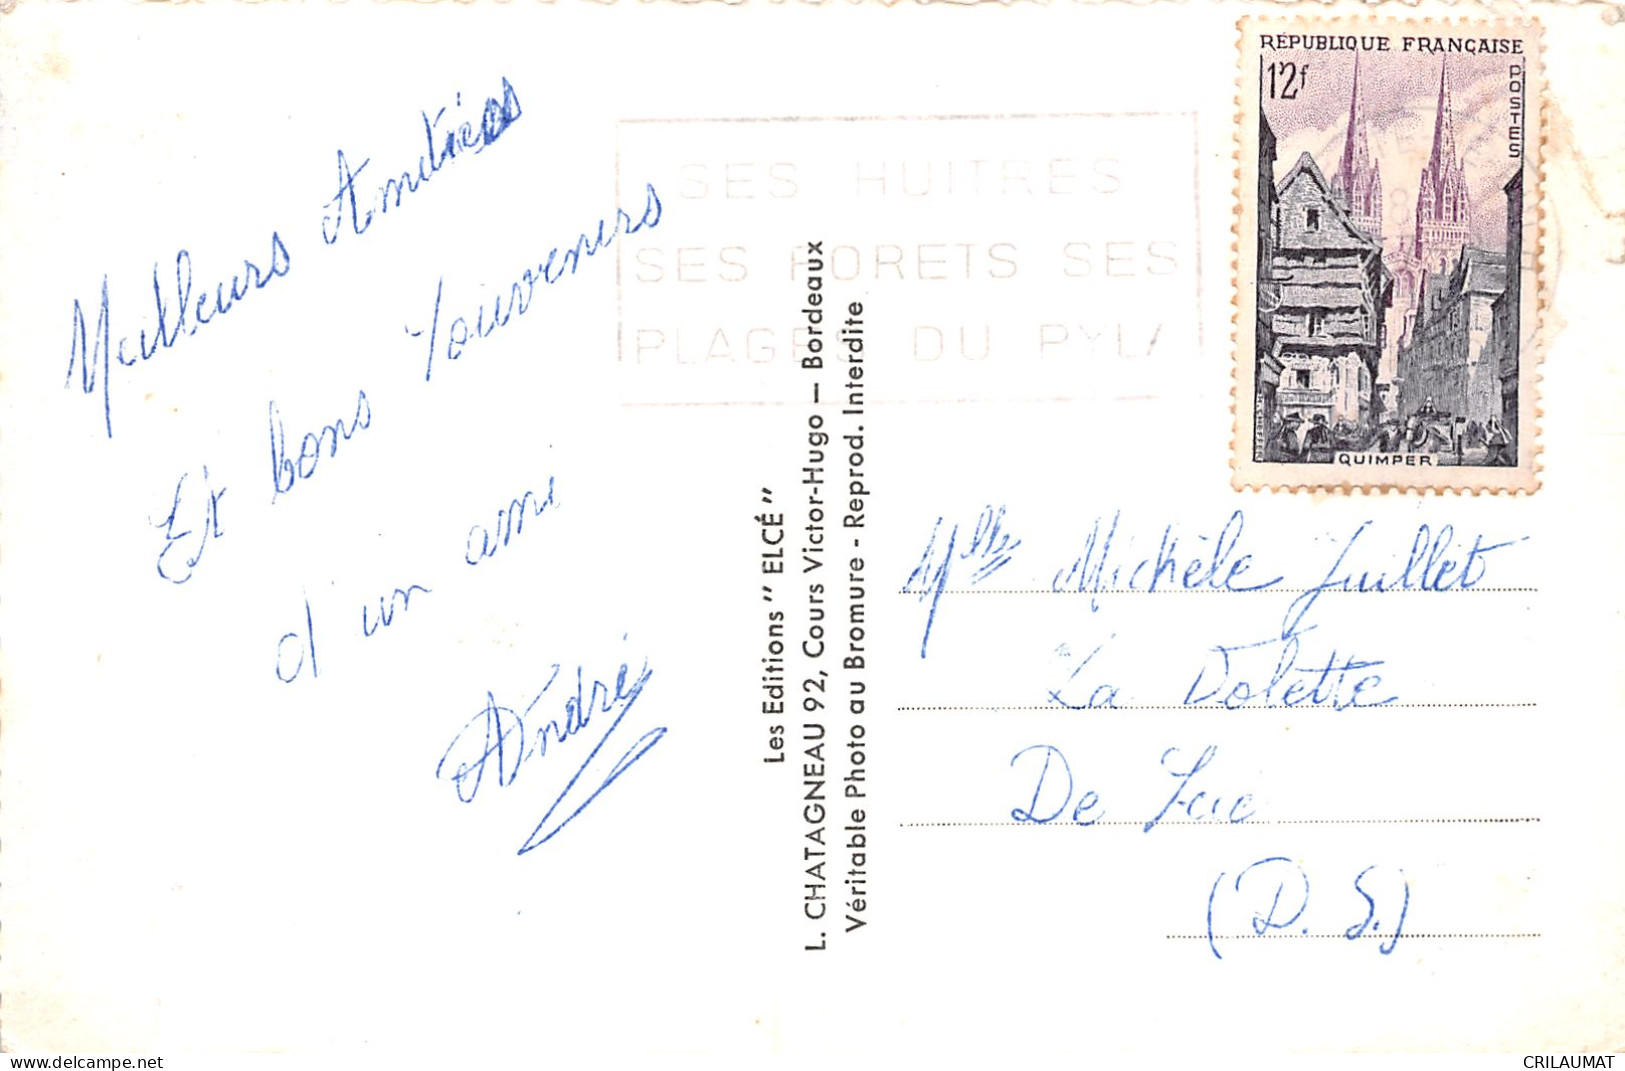 Meilleurs Amitiées
Et bons souvenirs
d'un ami
André
SES HUITRES
SES FORETS SES
PLAGES DU PYLA
Les Editions " ELCÉ "
L. CHATAGNEAU 92, Cours Victor-Hugo — Bordeaux
Véritable Photo au Bromure - Reprod. Interdite
RÉPUBLIQUE FRANÇAISE
12f
POSTES
QUIMPER
Mlle Michèle Juillet
La Volette
De
(D. S.)
www.delcampe.net
CRILAUMAT